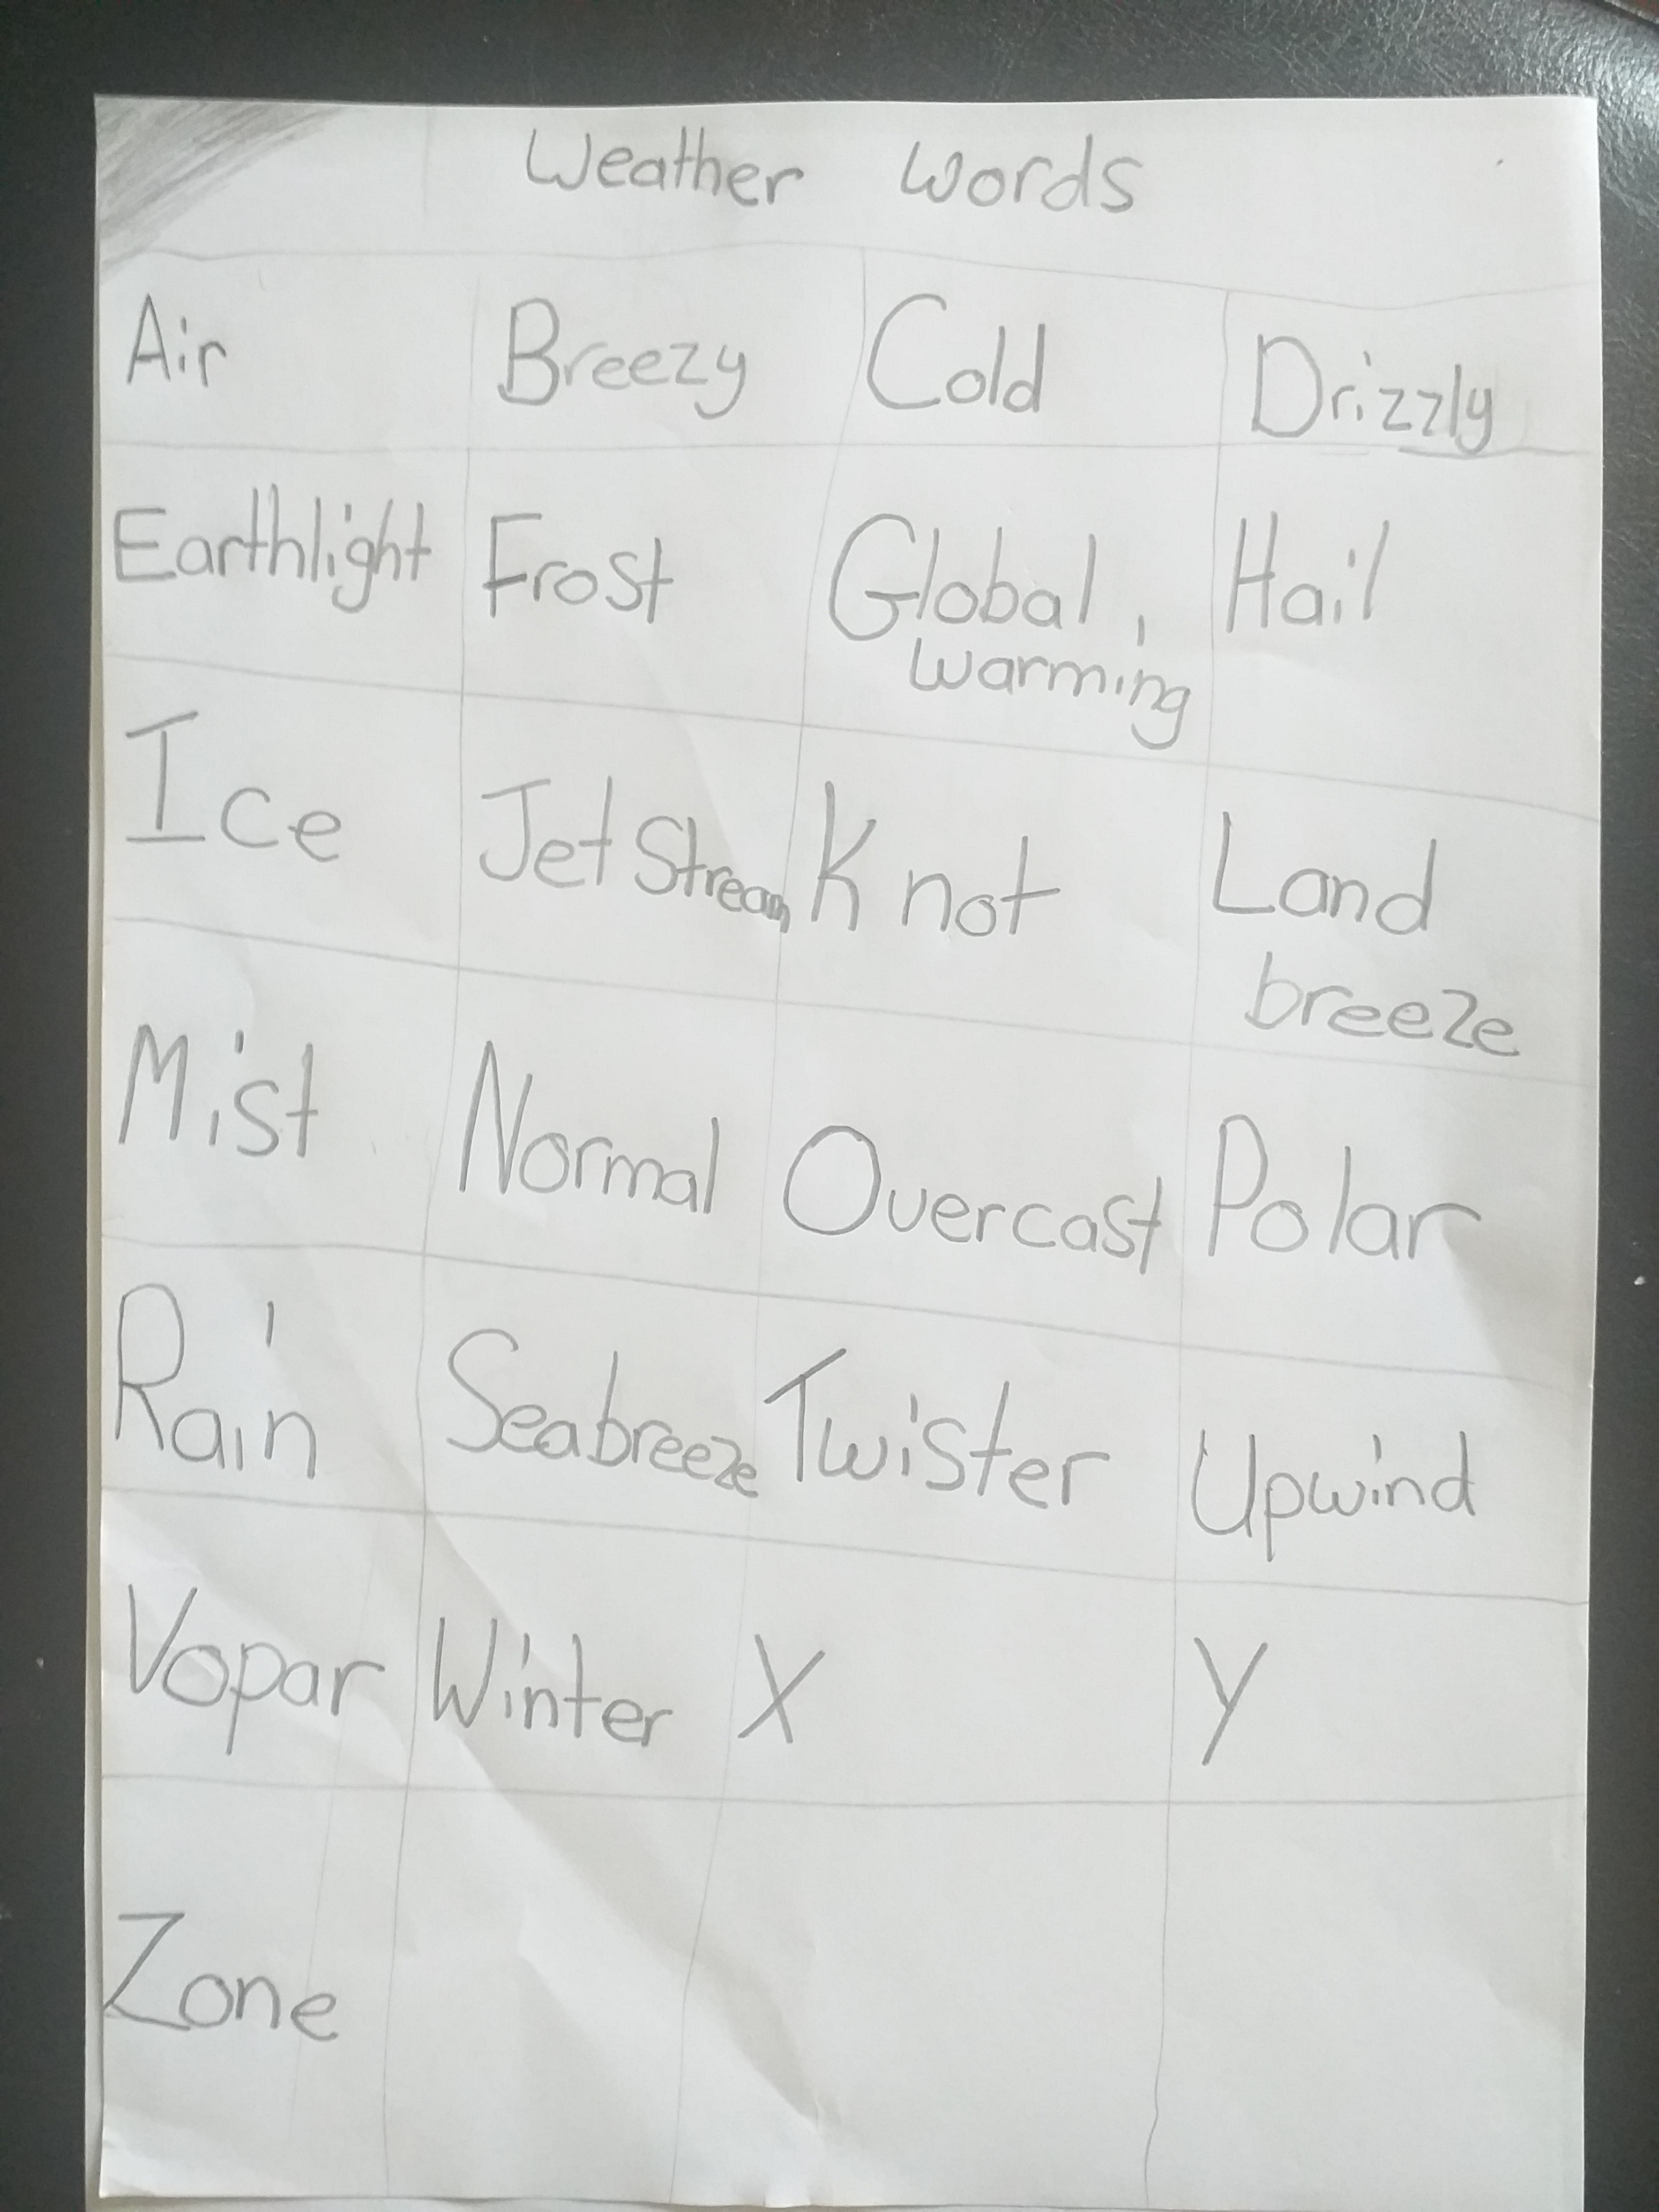 Weather words
Air Breezy Cold Drizzly
Earthlight Frost Global Hail
warming
Ice Jet Stream Knot Land
breeze
Mist Normal Overcast Polar
Rain Seabreeze Twister Upwind
Vopar Winter X Y
Zone